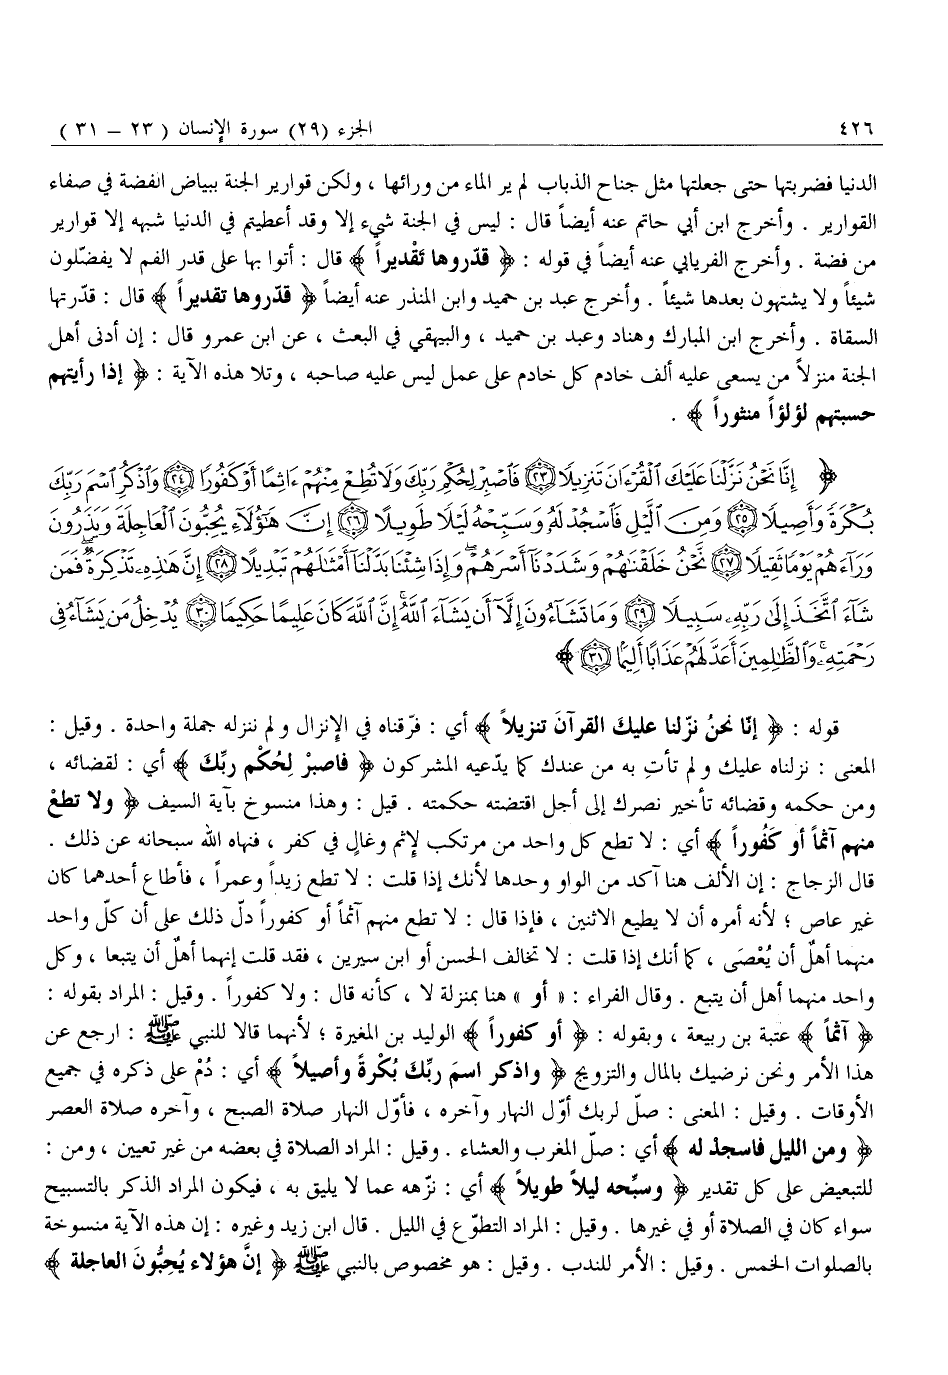 ٤٢٦ الجزء (٢٩) سورة الإنسان ( ٢٣ – ٣١ )
الدنيا فضربتها حتى جعلتها مثل جناح الذباب لم ير الماء من ورائها ، ولكن قوارير الجنة ببياض الفضة في صفاء
القوارير . وأخرج ابن أبي حاتم عنه أيضاً قال : ليس في الجنة شيء إلا وقد أعطيتم في الدنيا شبهه إلا قوارير
من فضة . وأخرج الفريابي عنه أيضاً في قوله : ﴿ قدّروها تَقْديراً ﴾ قال : أتوا بها على قدر الفم لا يفضّلون
شيئاً ولا يشتهون بعدها شيئاً . وأخرج عبد بن حميد وابن المنذر عنه أيضاً ﴿ قدّروها تقديراً ﴾ قال : قدّرتها
السقاة . وأخرج ابن المبارك وهناد وعبد بن حميد ، والبيهقي في البعث ، عن ابن عمرو قال : إن أدنى أهل
الجنة منزلاً من يسعى عليه ألف خادم كل خادم على عمل ليس عليه صاحبه ، وتلا هذه الآية : ﴿ إذا رأيتهم
حسبتهم لؤلؤاً منثوراً ﴾ .
﴿ إِنَّا نَحْنُ نَزَّلْنَا عَلَيْكَ ٱلْقُرْءَانَ تَنزِيلًا ٢٣ فَٱصْبِرْ لِحُكْمِ رَبِّكَ وَلَا تُطِعْ مِنْهُمْ ءَاثِمًا أَوْ كَفُورًا ٢٤ وَٱذْكُرِ ٱسْمَ رَبِّكَ
بُكْرَةً وَأَصِيلًا ٢٥ وَمِنَ ٱلَّيْلِ فَٱسْجُدْ لَهُۥ وَسَبِّحْهُ لَيْلًا طَوِيلًا ٢٦ إِنَّ هَٰٓؤُلَآءِ يُحِبُّونَ ٱلْعَاجِلَةَ وَيَذَرُونَ
وَرَآءَهُمْ يَوْمًا ثَقِيلًا ٢٧ نَّحْنُ خَلَقْنَٰهُمْ وَشَدَدْنَآ أَسْرَهُمْ ۖ وَإِذَا شِئْنَا بَدَّلْنَآ أَمْثَٰلَهُمْ تَبْدِيلًا ٢٨ إِنَّ هَٰذِهِۦ تَذْكِرَةٌ ۖ فَمَن
شَآءَ ٱتَّخَذَ إِلَىٰ رَبِّهِۦ سَبِيلًا ٢٩ وَمَا تَشَآءُونَ إِلَّآ أَن يَشَآءَ ٱللَّهُ ۚ إِنَّ ٱللَّهَ كَانَ عَلِيمًا حَكِيمًا ٣٠ يُدْخِلُ مَن يَشَآءُ فِى
رَحْمَتِهِۦ ۚ وَٱلظَّٰلِمِينَ أَعَدَّ لَهُمْ عَذَابًا أَلِيمًۢا ٣١ ﴾
قوله : ﴿ إنّا نحنُ نزّلنا عليكَ القرآنَ تنزيلاً ﴾ أي : فرّقناه في الإنزال ولم ننزله جملة واحدة . وقيل :
المعنى : نزلناه عليك ولم تأتِ به من عندك كما يدّعيه المشركون ﴿ فاصبرْ لِحُكْم ربِّكَ ﴾ أي : لقضائه ،
ومن حكمه وقضائه تأخير نصرك إلى أجل اقتضته حكمته . قيل : وهذا منسوخ بآية السيف ﴿ ولا تطعْ
منهم آثماً أو كَفُوراً ﴾ أي : لا تطع كل واحد من مرتكب لإثم وغالٍ في كفر ، فنهاه الله سبحانه عن ذلك .
قال الزجاج : إن الألف هنا آكد من الواو وحدها لأنك إذا قلت : لا تطع زيداً وعمراً ، فأطاع أحدهما كان
غير عاص ؛ لأنه أمره أن لا يطيع الاثنين ، فإذا قال : لا تطع منهم آثماً أو كفوراً دلّ ذلك على أن كلّ واحد
منهما أهلٌ أن يُعْصَى ، كما أنك إذا قلت : لا تخالف الحسن أو ابن سيرين ، فقد قلت إنهما أهلٌ أن يتبعا ، وكل
واحد منهما أهل أن يتبع . وقال الفراء : « أو » هنا بمنزلة لا ، كأنه قال : ولا كفوراً . وقيل : المراد بقوله :
﴿ آثماً ﴾ عتبة بن ربيعة ، وبقوله : ﴿ أو كفوراً ﴾ الوليد بن المغيرة ؛ لأنهما قالا للنبي ﷺ : ارجع عن
هذا الأمر ونحن نرضيك بالمال والتزويج ﴿ واذكر اسمَ ربِّكَ بُكْرةً وأصيلاً ﴾ أي : دُمْ على ذكره في جميع
الأوقات . وقيل : المعنى : صلّ لربك أوّل النهار وآخره ، فأوّل النهار صلاة الصبح ، وآخره صلاة العصر
﴿ ومن الليل فاسجدْ له ﴾ أي : صلّ المغرب والعشاء . وقيل : المراد الصلاة في بعضه من غير تعيين ، ومن :
للتبعيض على كل تقدير ﴿ وسبِّحه ليلاً طويلاً ﴾ أي : نزّهه عما لا يليق به ، فيكون المراد الذكر بالتسبيح
سواء كان في الصلاة أو في غيرها . وقيل : المراد التطوّع في الليل . قال ابن زيد وغيره : إن هذه الآية منسوخة
بالصلوات الخمس . وقيل : الأمر للندب . وقيل : هو مخصوص بالنبي ﷺ ﴿ إنَّ هؤلاء يُحِبُّونَ العاجلة ﴾